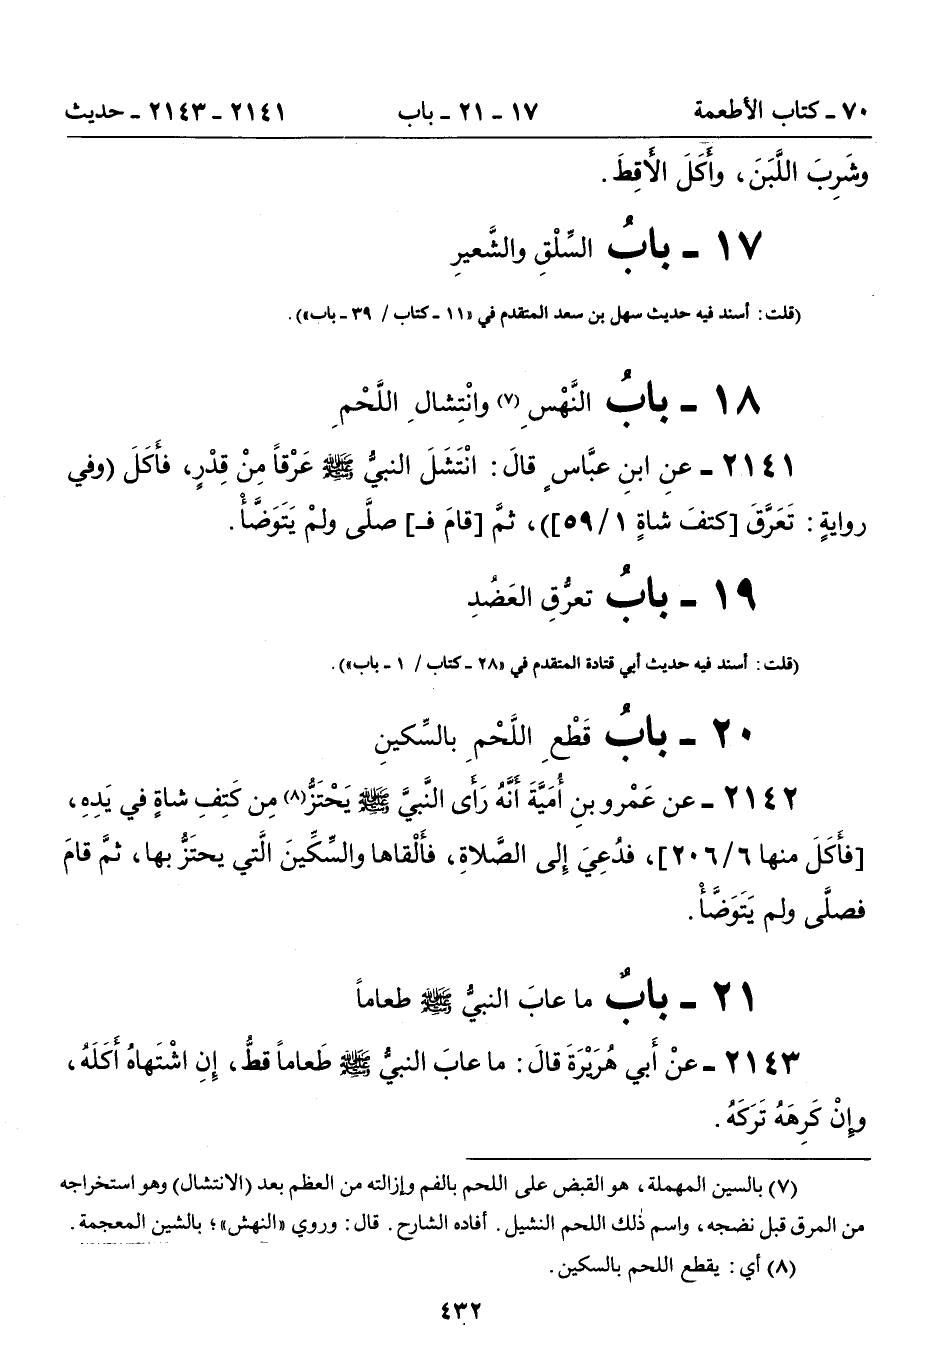 ٧٠ ـ كتاب الأطعمة ١٧ ـ ٢١ ـ باب ٢١٤١ ـ ٢١٤٣ ـ حديث
وشَرِبَ اللَّبَنَ، وأَكَلَ الأَقِطَ.
١٧ ـ بابُ السِّلْقِ والشَّعيرِ
(قلت: أسند فيه حديث سهل بن سعد المتقدم في «١١ ـ كتاب / ٣٩ ـ باب»).
١٨ ـ بابُ النَّهْسِ(٧) وانْتِشالِ اللَّحْمِ
٢١٤١ ـ عنِ ابنِ عبَّاسٍ قالَ: انْتَشَلَ النبيُّ ﷺ عَرْقاً مِنْ قِدْرٍ، فأَكَلَ (وفي
روايةٍ: تَعَرَّقَ [كتفَ شاةٍ ١/ ٥٩])، ثمَّ [قامَ فـ] صلَّى ولمْ يَتَوَضَّأْ.
١٩ ـ بابُ تعرُّقِ العَضُدِ
(قلت: أسند فيه حديث أبي قتادة المتقدم في «٢٨ ـ كتاب / ١ ـ باب»).
٢٠ ـ بابُ قَطْعِ اللَّحْمِ بالسِّكينِ
٢١٤٢ ـ عن عَمْرو بنِ أُمَيَّةَ أَنَّهُ رَأَى النَّبيَّ ﷺ يَحْتَزُّ(٨) مِن كَتِفِ شاةٍ في يَدِهِ،
[فأَكَلَ منها ٦/ ٢٠٦]، فدُعِيَ إِلى الصَّلاةِ، فأَلْقاها والسِّكِّينَ الَّتي يحتَزُّ بها، ثمَّ قامَ
فصلَّى ولم يَتَوَضَّأْ.
٢١ ـ بابٌ ما عابَ النبيُّ ﷺ طعاماً
٢١٤٣ ـ عنْ أَبي هُرَيْرَةَ قالَ: ما عابَ النبيُّ ﷺ طَعاماً قطُّ، إِنِ اشْتَهاهُ أَكَلَهُ،
وإِنْ كَرِهَهُ تَرَكَهُ.
(٧) بالسين المهملة، هو القبض على اللحم بالفم وإزالته من العظم بعد (الانتشال) وهو استخراجه
من المرق قبل نضجه، واسم ذٰلك اللحم النشيل. أفاده الشارح. قال: وروي «النهش»؛ بالشين المعجمة.
(٨) أي: يقطع اللحم بالسكين.
٤٣٢